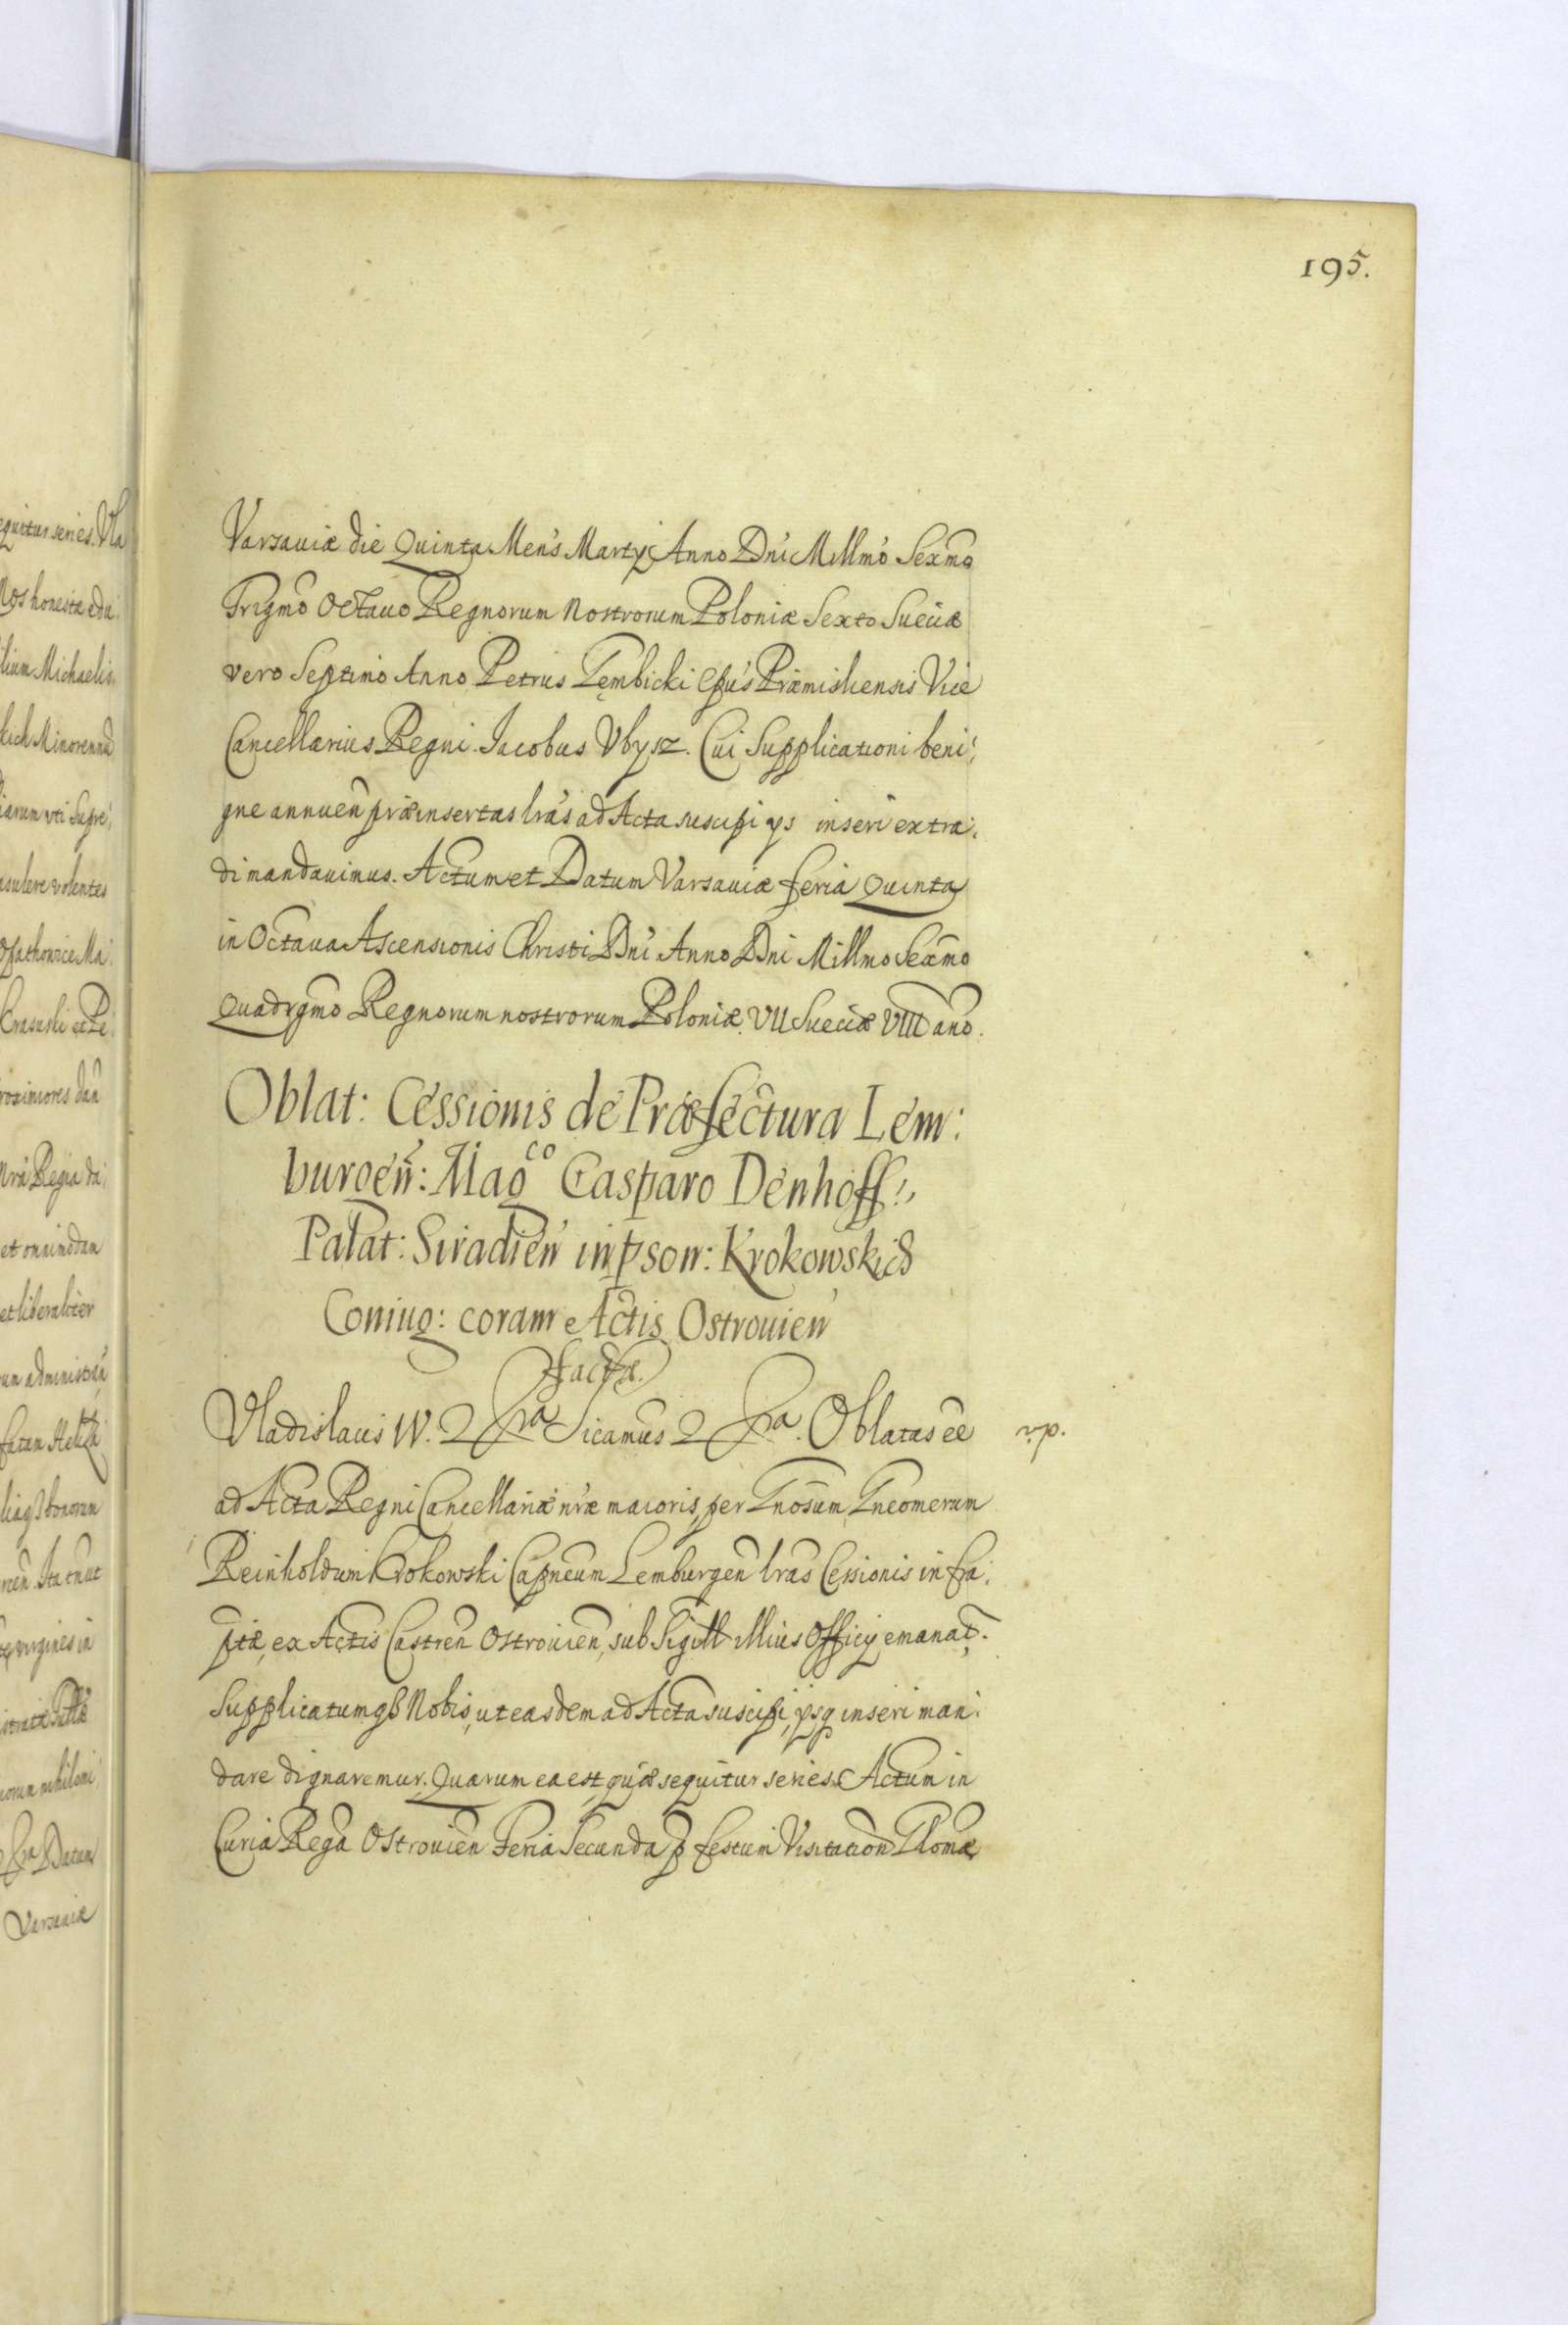 195.
Varsaviæ die Quinta Mens Martij Anno Dni Millmo Sexmo
Trigmo Octauo Regnorum Nostrorum Poloniæ Sexto Sueciæ
vero Septimo Anno Petrus Gembicki Epus Præmisliensis Vice
Cancellarius Regni. Jacobus Vbysz. Cui Supplicationi beni:
gne annuen præinsertas lras ad Acta suscipi ys inseri extra:
di mandauimus. Actum et Datum Varsauiæ feria Quinta
in Octaua Ascensionis Christi Dni Anno Dni Millmo Sexmo
Quadrgmo Regnorum nostrorum Poloniæ VII Sueciæ VIII ano.
Oblat: Cessionis de Præfectura Lem:
burgen: Mag^co Casparo Denhoff:,
Palat: Siradien in pson: Krokowskich
Coniug: coram Actis Ostrouien
factæ.
Vladislaus IV. 2 fra Sicamus 2 fra. Oblatas ee v.p.
ad Acta Regni Cancellariæ nræ maioris, per Gnosum Gneomerum
Reinholdum Krokowski Capneum Lemburgen lras Cessionis infra:
ptæ, ex Actis Castren Ostrouien, sub Sigill illius Officy emanat.
Supplicatumqß Nobis, ut easdem ad Acta suscipi, ysq inseri man:
dare dignaremur. Quarum ea est, quæ sequitur series. Actum in
Curia Rega Ostrouien Feria Secunda p festum Visitation Glomæ
equitur series. Vla
Nos honestæ edu:
Michaelis
Minorennu
iarum vti Supre:
asulere volentes
Crasuski et Pe:
roximiores dan
Nra Regia da:
et liberaliter
Datum
Varsauiæ